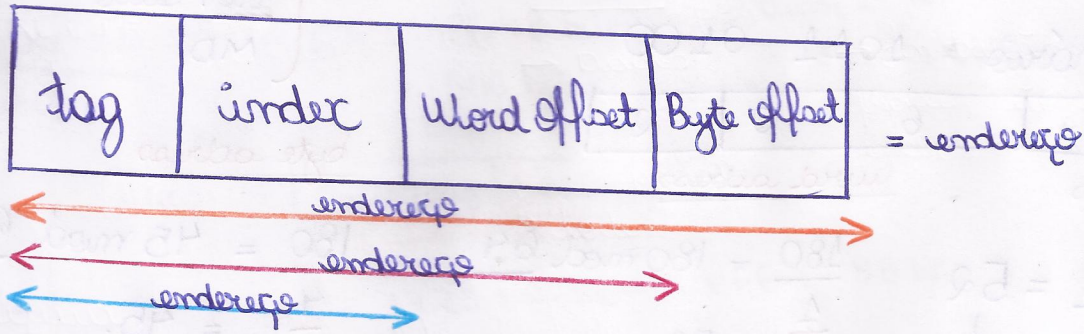 tag index Word Offset Byte offset = endereço
endereço
endereço
endereço